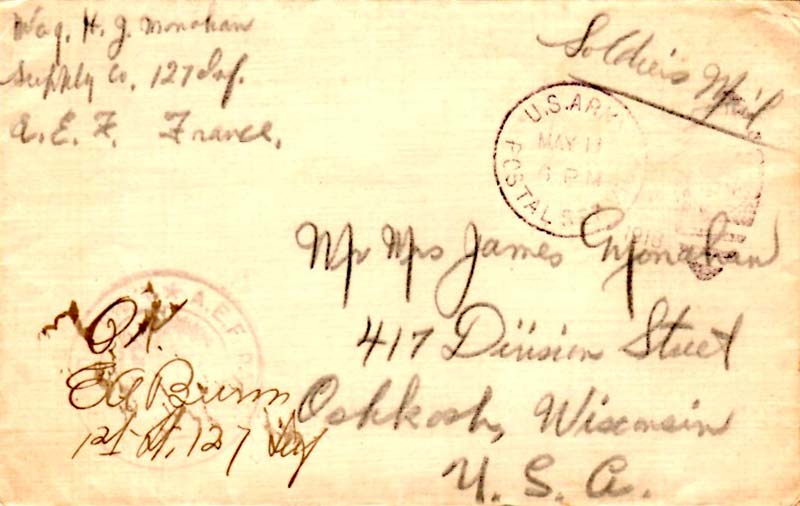 Wag. H. J. Monahan
Supply Co. 127 Inf.
A. E. F. France.
Soldier's Mail
U.S. ARMY
MAY 11
6 PM
POSTAL S
1918
Mr Mrs James Monahan
417 Division Street
Oshkosh, Wisconsin
U. S. A.
A.E.F.
O.K.
1st Lt. 127 Inf